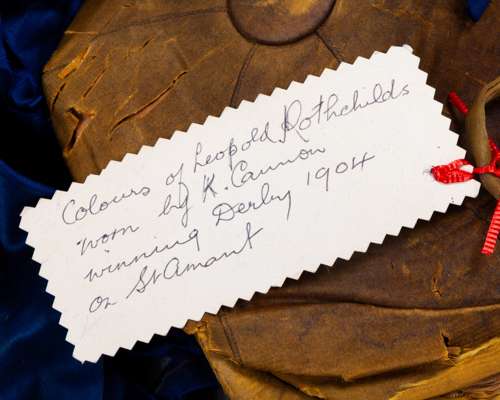 Colours of Leopold Rothchilds
worn by K. Cannon
winning Derby 1904
on St Amant